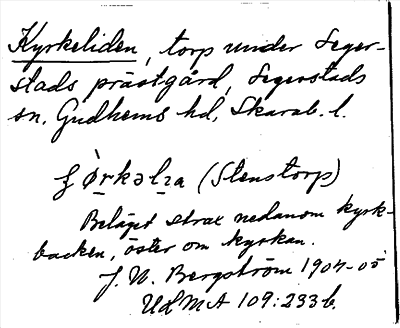 Kyrkeliden, torp under Seger-
stads prästgård, Segerstads
sn. Gudhems hd, Skarab. l.
(Stenstorp)
Beläget strax nedanom kyrk-
backen, öster om kyrkan.
J. N. Bergström 1904-05
UdMA 109:233b.